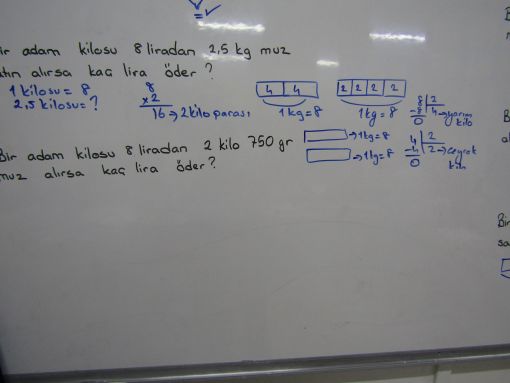 ir adam kilosu 8 liradan 2,5 kg muz
atın alırsa kaç lira öder ?
1 kilosu = 8
2,5 kilosu = ?
8
x2
16 → 2 kilo parası
4 4
1 kg = 8
2 2 2 2
1 kg = 8
8 2
-8 4 → yarım kilo
0
→ 1 kg = 8
→ 1 kg = 8
4 2
-4 2 → çeyrek
0
Bir adam kilosu 8 liradan 2 kilo 750 gr
muz alırsa kaç lira öder ?
Bir
sa